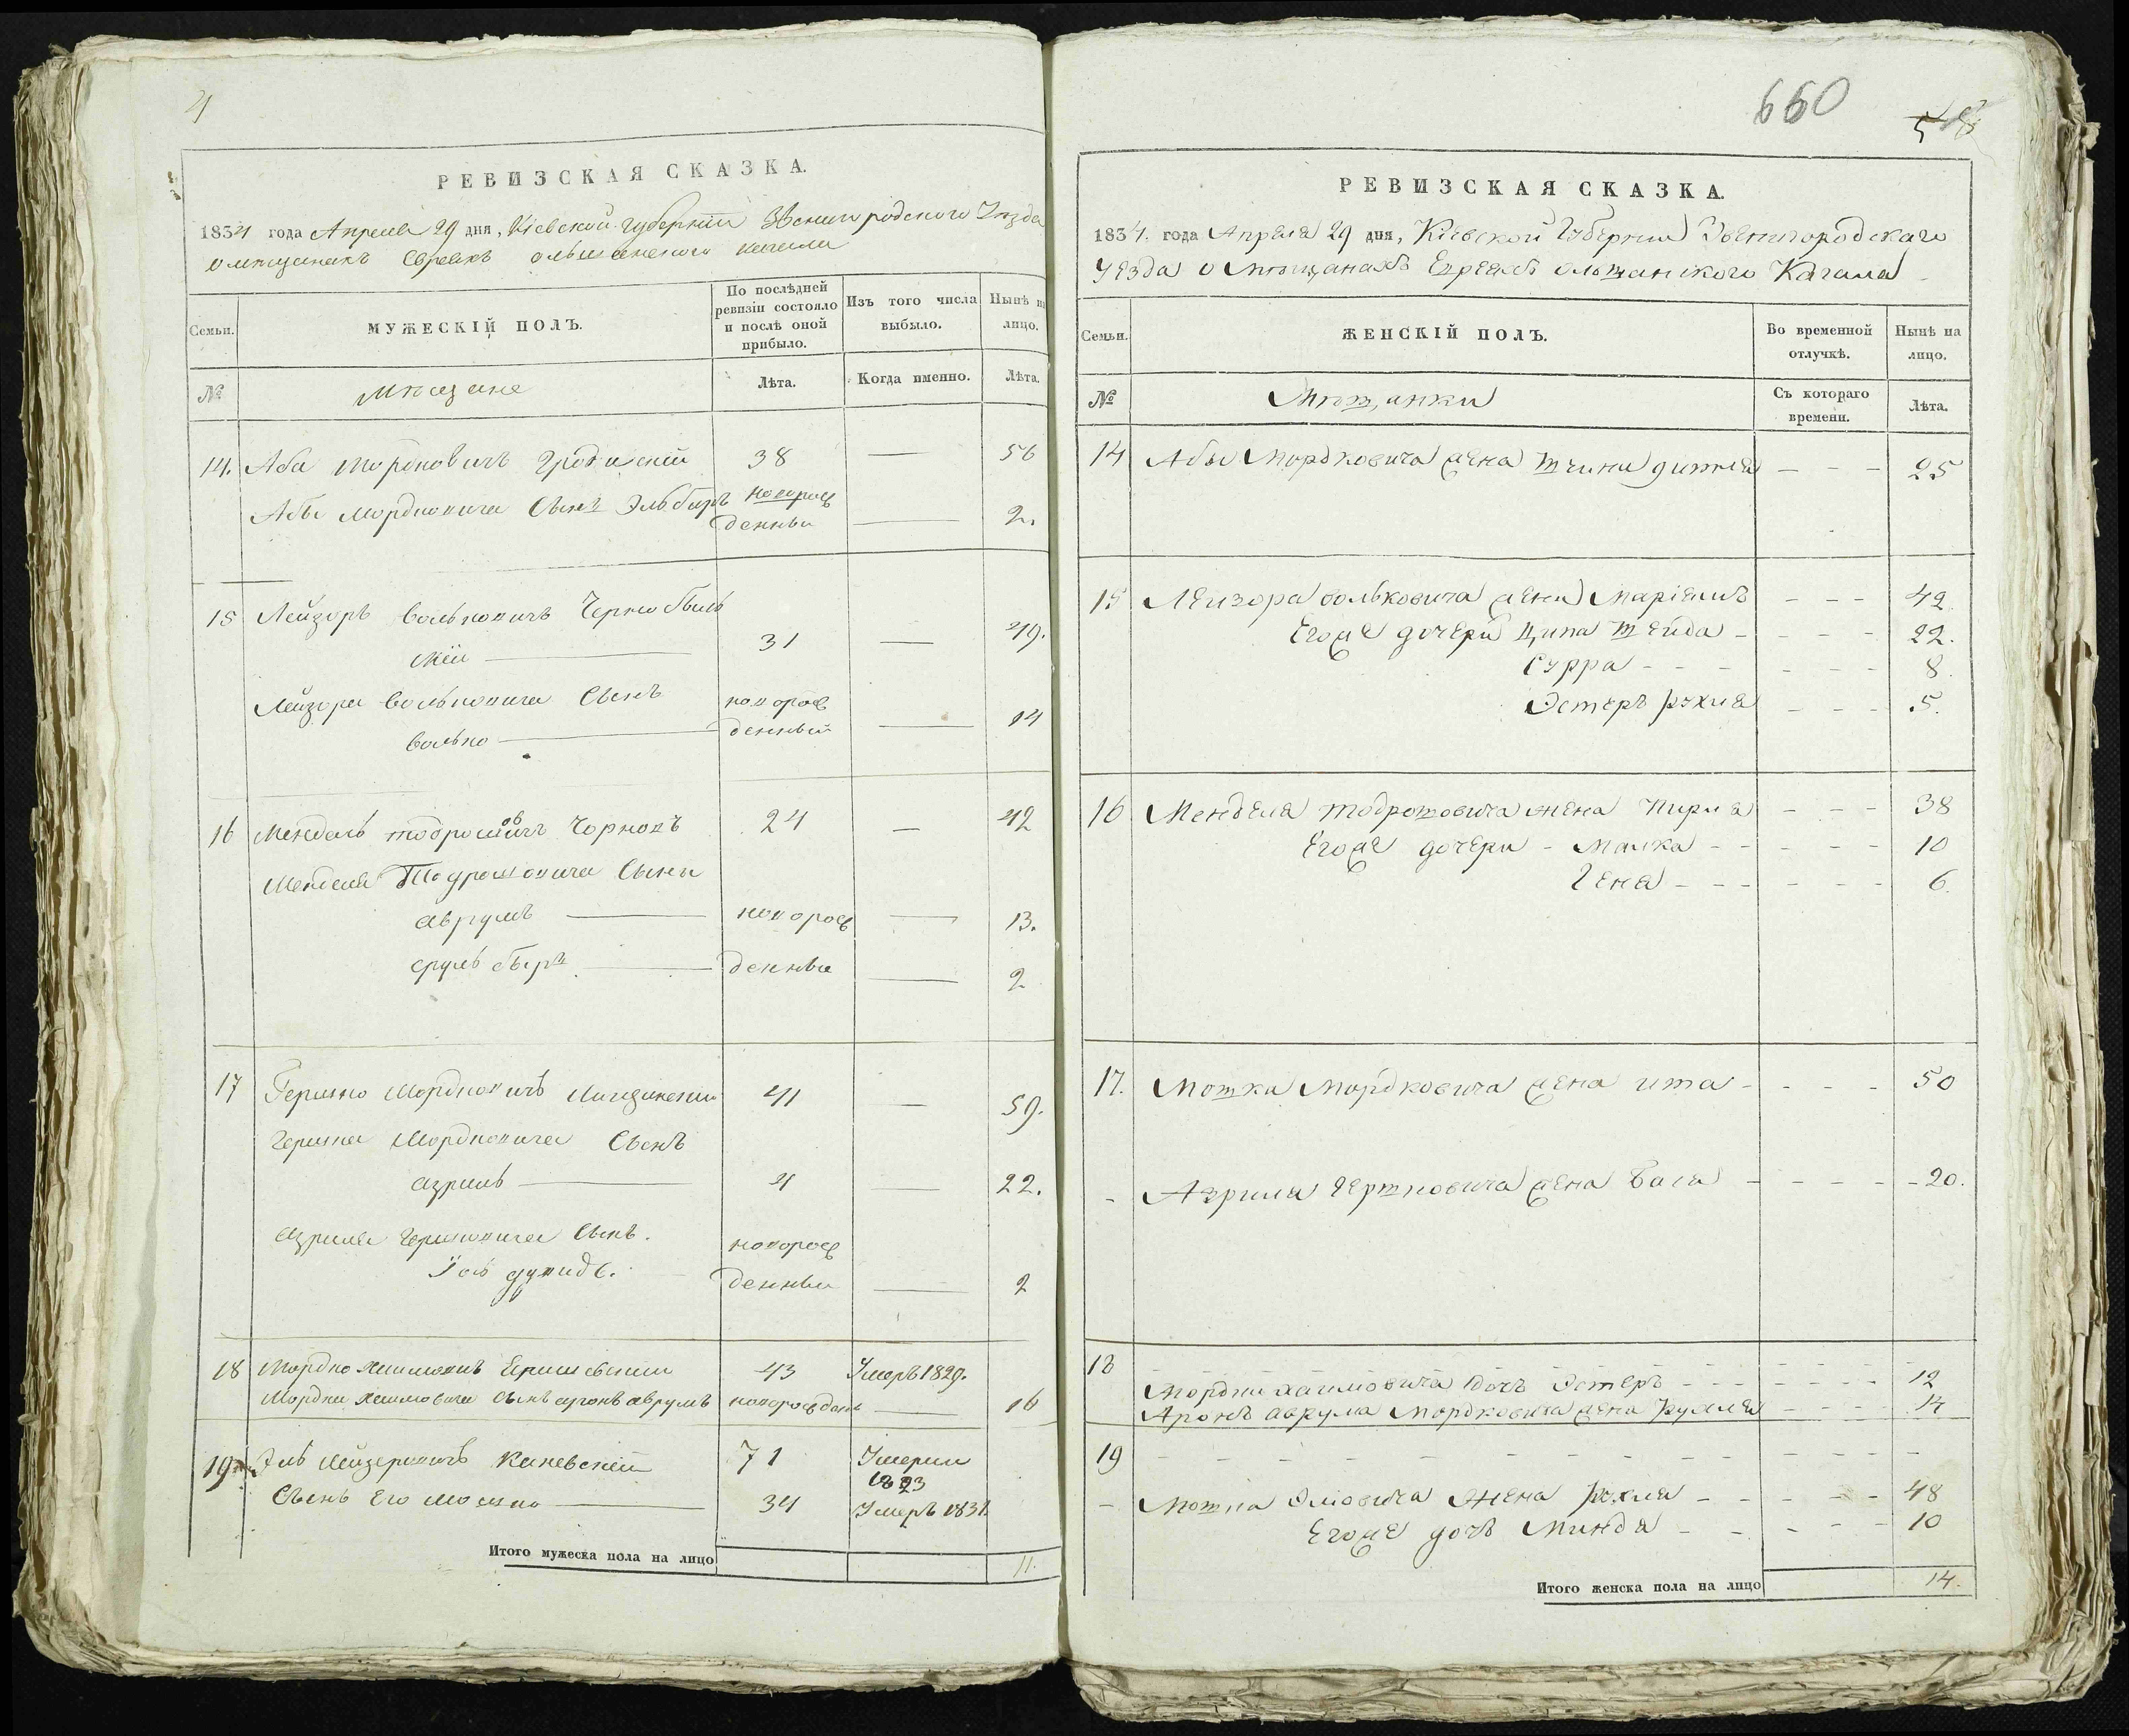 4
РЕВИЗСКАЯ СКАЗКА.
1834 года Апреля 29 дня, Кіевской губерніи Звенигородского Уезда
о мещанахъ Евреяхъ ольшанского кагала
Семьи.
МУЖЕСКІЙ ПОЛЪ.
По послѣдней ревизіи состояло и послѣ оной прибыло.
Изъ того числа выбыло.
Нынѣ на лицо.
№
мещане
Лѣта.
Когда именно.
Лѣта.
14. Аба Мордковичъ Гродиский 38 — 56
Абы Мордковича Сынъ Эльберъ новорож
денный — 2.
15 Лейзоръ Вольковичъ Чернобыль
скій — 31 — 49.
Лейзора Вольковича Сынъ новорож
Волько — денный — 14
16 Мендель Тодросовичъ Чорнокъ 24 — 42
Менделя Тодросовича Сыны
Аврумъ — новорож — 13.
Сруль беръ — денные — 2
17 Гершко Мордковичъ 41 — 59.
Гершка Мордковича Сынъ
Азриль — 4 — 22.
Азриля Гершковича Сынъ. новорож
Іось дувидъ. денный — 2
18 Мордко Хаимовичъ 43 Умеръ 1829.
Мордки Хаимовича Сынъ аронъ аврумъ новорожден — 16
19 Эль Лейзеровичъ Каневскій 71 Умерли
1823
Сынъ Его Мошко — 34 Умеръ 1831.
Итого мужеска пола на лицо 11.
660
548
РЕВИЗСКАЯ СКАЗКА.
1834. года Апреля 29 дня, Кіевской Губернии Звенигородскаго
Уезда о мещанахъ Евреяхъ ольшанского Кагала
Семьи.
ЖЕНСКІЙ ПОЛЪ.
Во временной отлучкѣ.
Нынѣ на лицо.
№
Мещанки
Съ котораго времени.
Лѣта.
14 Абы Мордковича жена - - - 25
15 Леизора Вольковича жена Маріемъ - - - 42
Егоже дочери Ципа Шейда - - - - 22.
Сурра - - - - - - 8.
Эстеръ рухля - - - 5.
16 Менделя тодросовича жена Пирля - - - 38
Егоже дочери - Малка - - - - - 10
Гена - - - - - - 6.
17. Мошка Мордковича жена ита - - - - 50
- Азриля Гершковича жена Бася - - - - - 20.
18 - - - - - - - - - - - - - -
Мордки хаимовича дочь Эстеръ - - - - - - - 12
Аронъ аврума Мордковича жена Рухля - - - - 14
19 - - - - - - - - - - - - - -
- Мошка Элiовича жена рухля - - - - - 48
Егоже дочь Минда - - - - - 10
Итого женска пола на лицо 14.